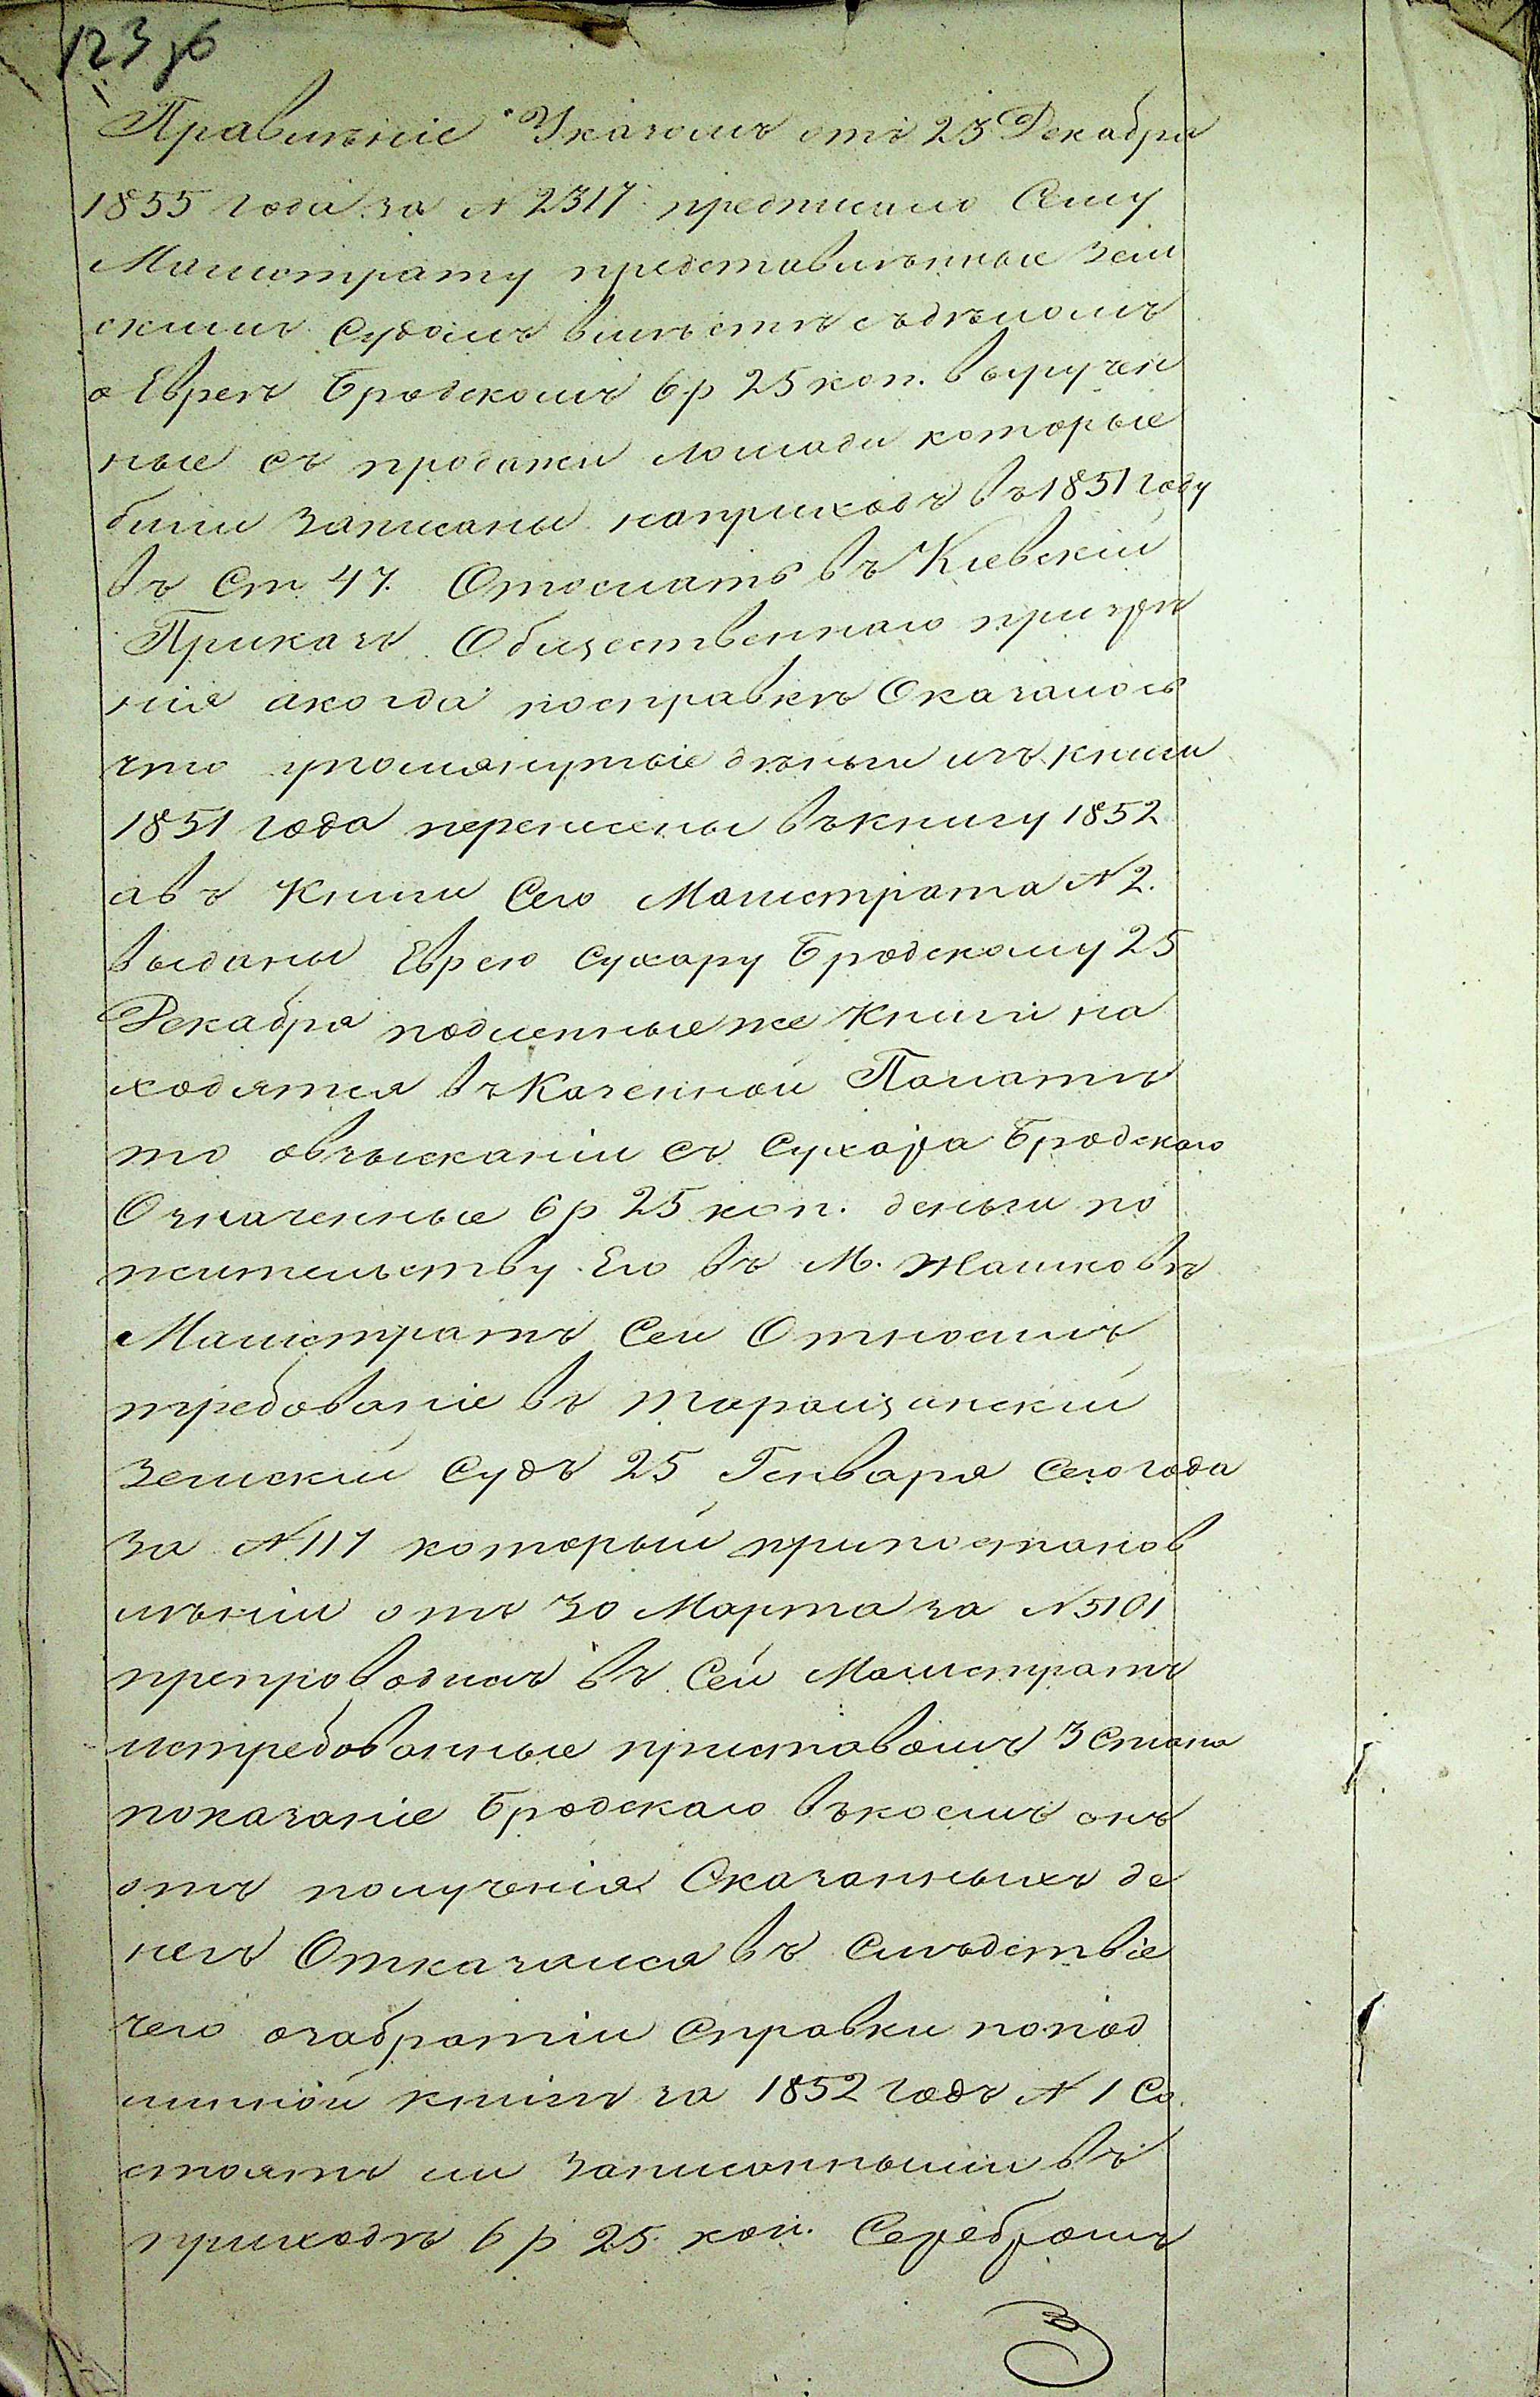 123 об
Правленіе Указомъ отъ 23 Декабря
1855 года за № 2317 предписало Сему
Магистрату представленные Зем
скимъ Судомъ вмѣстѣ съ дѣломъ
о Евреѣ Бродскомъ 6 р 25 коп. выручен
ные съ продажи лошади которые
были записаны на приходъ въ 1851 году
въ Ст. 47. Отослать въ Кіевскій
Приказъ Общественнаго призрѣ
нія а когда по справкѣ Оказалось
что упомянутые деньги изъ книги
1851 года перенесены въ книгу 1852
а въ Книги Сего Магистрата № 2.
выданы Еврею Сухару Бродскому 25
Декабря подленные же Книги на
ходятся въ Казенной Палатѣ
то о взысканіи съ Сухара Бродскаго
Означенные 6 р 25 коп. деньги по
жительству Его въ М. Жашковѣ
Магистратъ Сей Относилъ
требованіе въ Таращанскій
Земскій Судъ 25 Генваря Сего года
за № 117 который при постанов
лѣніи отъ 30 Марта за № 5101
препроводилъ въ Сей Магистратъ
истребованные приставомъ 3 Стана
показаніе Бродскаго въ коемъ онъ
отъ полученія Сказанныхъ де
негъ Отказался въ Слѣдствіе
чего о забратіи Справки по под
линной книгѣ за 1852 годъ № 1 Со
стоятъ ли Записанными въ
приходѣ 6 р 25 коп. Серебромъ